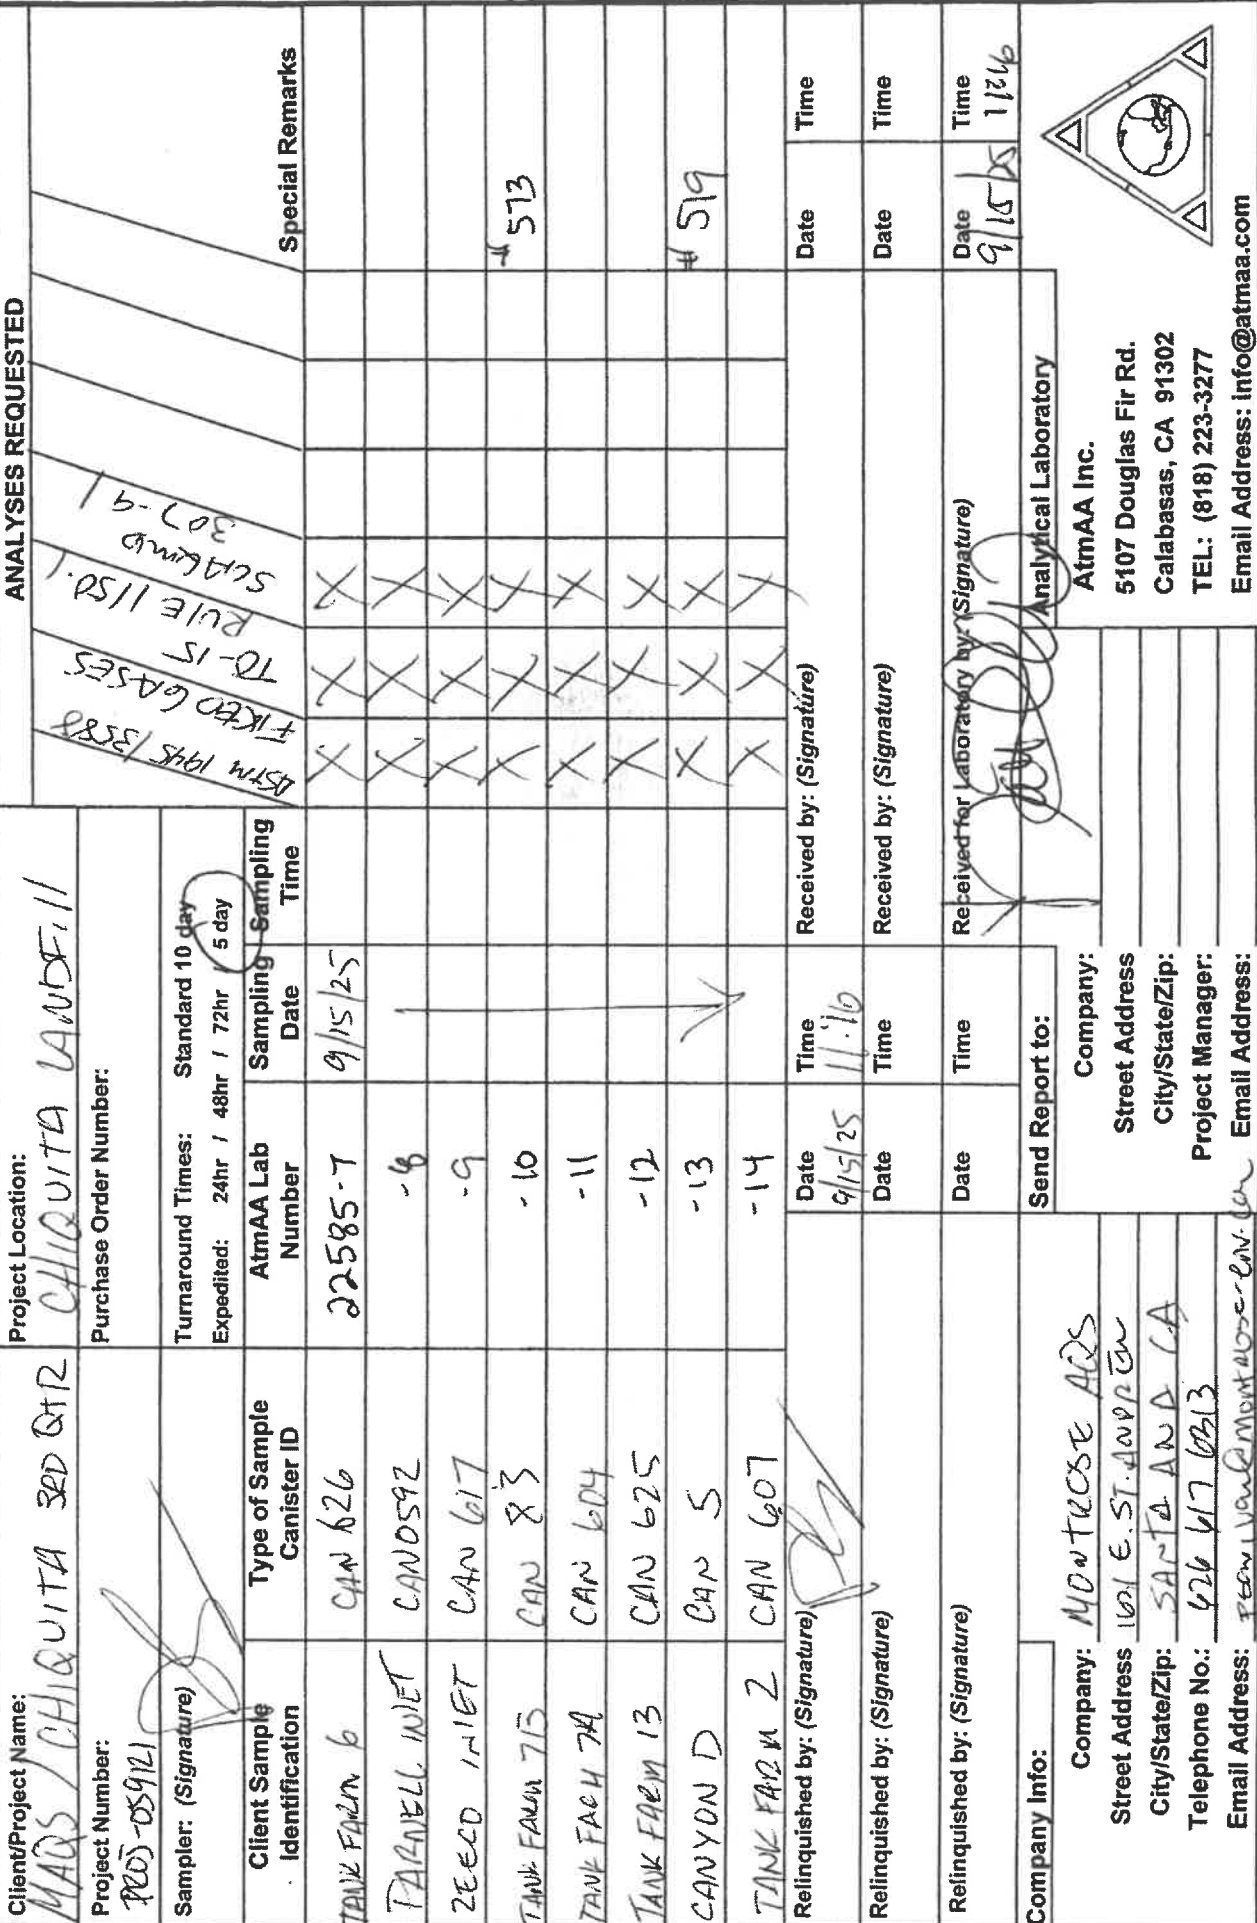 ANALYSES REQUESTED
Client/Project Name:
MAQS / CHIQUITA 3RD QTR
Project Location:
CHIQUITA LANDFill
Project Number:
PROJ-059121
Purchase Order Number:
Sampler: (Signature)
Turnaround Times: Standard 10 day
Expedited: 24hr / 48hr / 72hr / 5 day
ASTM 1945/3588
FIXED GASES
TO-15
RULE 1150.1
SCAQMD
307-91
Client Sample Identification
Type of Sample Canister ID
AtmAA Lab Number
Sampling Date
Sampling Time
Special Remarks
TANK FARM 6 CAN 626 22585-7 9/15/25 X X X
PARNELL INLET CAN0592 -8 X X X
ZEECO INLET CAN 617 -9 X X X
TANK FARM 7B CAN 83 -10 X X X #573
TANK FARM 7A CAN 604 -11 X X X
TANK FARM 13 CAN 625 -12 X X X
CANYON D CAN 5 -13 X X X #519
TANK FARM 2 CAN 607 -14 X X X
Relinquished by: (Signature) Date 9/15/25 Time 11:16 Received by: (Signature) Date Time
Relinquished by: (Signature) Date Time Received by: (Signature) Date Time
Relinquished by: (Signature) Date Time Received for Laboratory by: (Signature) Date 9/15/25 Time 1126
Company Info:
Company: MONTROSE AQS
Street Address 1621 E. ST. ANDREW
City/State/Zip: SANTA ANA CA
Telephone No.: 626 617 0313
Email Address:
Send Report to:
Company:
Street Address
City/State/Zip:
Project Manager:
Email Address:
Analytical Laboratory
AtmAA Inc.
5107 Douglas Fir Rd.
Calabasas, CA 91302
TEL: (818) 223-3277
Email Address: info@atmaa.com